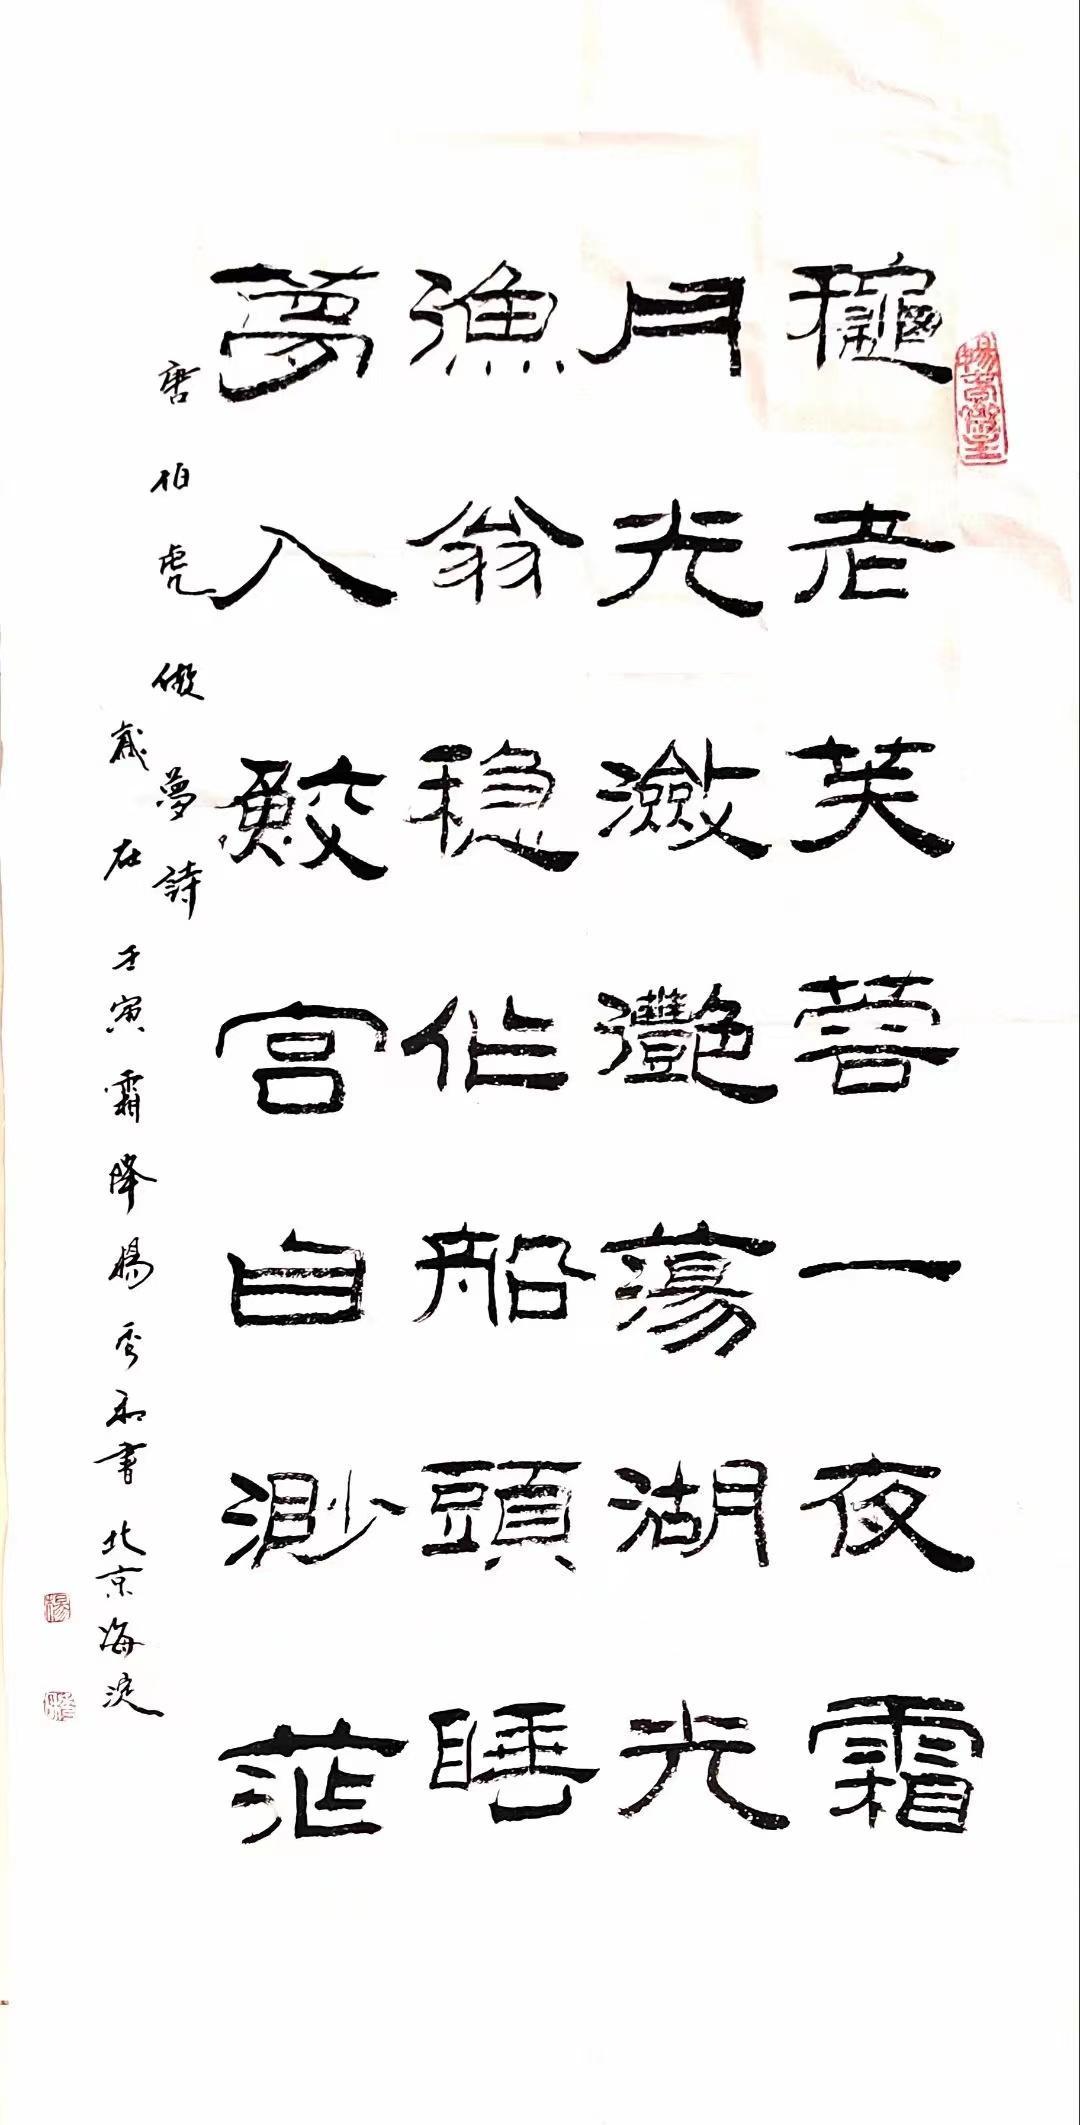 龝老芙蓉一夜霜
月光瀲灧蕩湖光
漁翁稳作船頭睡
夢入鮫宮自渺茫
唐伯虎做夢詩
歲在壬寅霜降楊秀和書北京海淀
楊